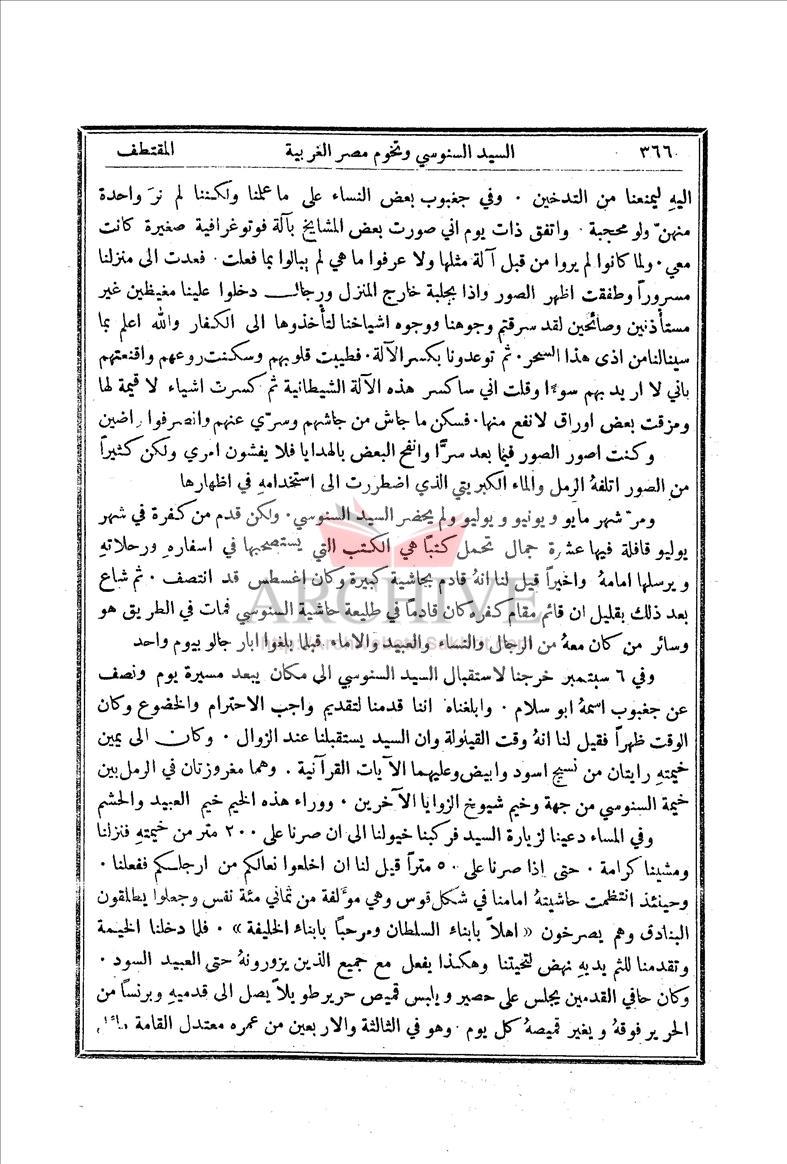 ٣٦٦ السيد السنوسي وتخوم مصر الغربية المقتطف
اليهِ ليمنعنا من التدخين ٠ وفي جغبوب بعض النساء على ما علمنا ولكننا لم نرَ واحدة
منهنّ ولو محجبة ٠ واتفق ذات يوم اني صورت بعض المشايخ بآلة فوتوغرافية صغيرة كانت
معي ٠ ولما كانوا لم يروا من قبل آلة مثلها ولا عرفوا ما هي لم يبالوا بما فعلت ٠ فعدت الى منزلنا
مسروراً وطفقت اظهر الصور واذا بجلبة خارج المنزل ورجال دخلوا علينا مغيظين غير
مستأذنين وصائحين لقد سرقتم وجوهنا ووجوه اشياخنا لتأخذوها الى الكفار والله اعلم بما
سينالنا من اذى هذا السحر ٠ ثم توعدونا بكسر الآلة ٠ فطيبت قلوبهم وسكنت روعهم واقنعتهم
باني لا اريد بهم سوءًا وقلت اني ساكسر هذه الآلة الشيطانية ثم كسرت اشياء لا قيمة لها
ومزقت بعض اوراق لا نفع منها ٠ فسكن ما جاش من جاشهم وسرّي عنهم وانصرفوا راضين
وكنت اصور الصور فيما بعد سرًّا وانفح البعض بالهدايا فلا يفشون امري ولكن كثيراً
من الصور اتلفهُ الرمل والماء الكبريتي الذي اضطررت الى استخدامهِ في اظهارها
ومرّ شهر مايو ويونيو ويوليو ولم يحضر السيد السنوسي ٠ ولكن قدم من كفرة في شهر
يوليو قافلة فيها عشرة جمال تحمل كتباً هي الكتب التي يستصحبها في اسفارهِ ورحلاتهِ
ويرسلها امامهُ واخيراً قيل لنا انهُ قادم بحاشية كبيرة وكان اغسطس قد انتصف ٠ ثم شاع
بعد ذلك بقليل ان قائم مقام كفره كان قادماً في طليعة حاشية السنوسي فمات في الطريق هو
وسائر من كان معهُ من الرجال والنساء والعبيد والاماء قبلما بلغوا ابار جالو بيوم واحد
وفي ٦ سبتمبر خرجنا لاستقبال السيد السنوسي الى مكان يبعد مسيرة يوم ونصف
عن جغبوب اسمهُ ابو سلام ٠ وابلغناه اننا قدمنا لتقديم واجب الاحترام والخضوع وكان
الوقت ظهراً فقيل لنا انهُ وقت القيلولة وان السيد يستقبلنا عند الزوال ٠ وكان الى يمين
خيمتهِ رايتان من نسيج اسود وابيض وعليهما الآيات القرآنية ٠ وهما مغروزتان في الرمل بين
خيمة السنوسي من جهة وخيم شيوخ الزوايا الآخرين ٠ ووراء هذه الخيم خيم العبيد والحشم
وفي المساء دعينا لزيارة السيد فركبنا خيولنا الى ان صرنا على ٢٠٠ متر من خيمتهِ فنزلنا
ومشينا كرامة ٠ حتى اذا صرنا على ٥٠ متراً قيل لنا ان اخلعوا نعالكم من ارجلكم ففعلنا ٠
وحينئذ انتظمت حاشيتهُ امامنا في شكل قوس وهي مؤلفة من ثماني مئة نفس وجعلوا يطلقون
البنادق وهم يصرخون « اهلاً بابناء السلطان ومرحباً بابناء الخليفة » ٠ فلما دخلنا الخيمة
وتقدمنا للثم يديهِ نهض لتحيتنا وهكذا يفعل مع جميع الذين يزورونهُ حتى العبيد السود ٠
وكان حافي القدمين يجلس على حصير ويلبس قميص حرير طويلاً يصل الى قدميهِ وبرنساً من
الحرير فوقهُ ويغير قميصهُ كل يوم ٠ وهو في الثالثة والاربعين من عمره معتدل القامة
ARCHIVE